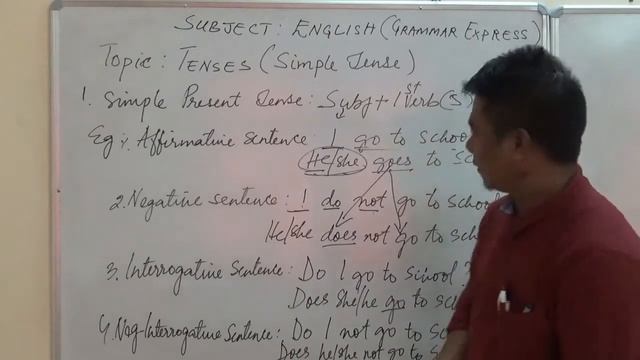 SUBJECT: ENGLISH (GRAMMAR EXPRESS)
Topic: TENSES (Simple Tense)
1. Simple Present Tense: Subj + 1st Verb(s)
Eg:. Affirmative sentence: I go to school
He/she goes to sc
2. Negative sentence: I do not go to school
He/she does not go to sch
3. Interrogative sentence: Do I go to school?
Does she/he go to sch
4. Neg-Interrogative Sentence: Do I not go to sc
Does he/she not go to sc